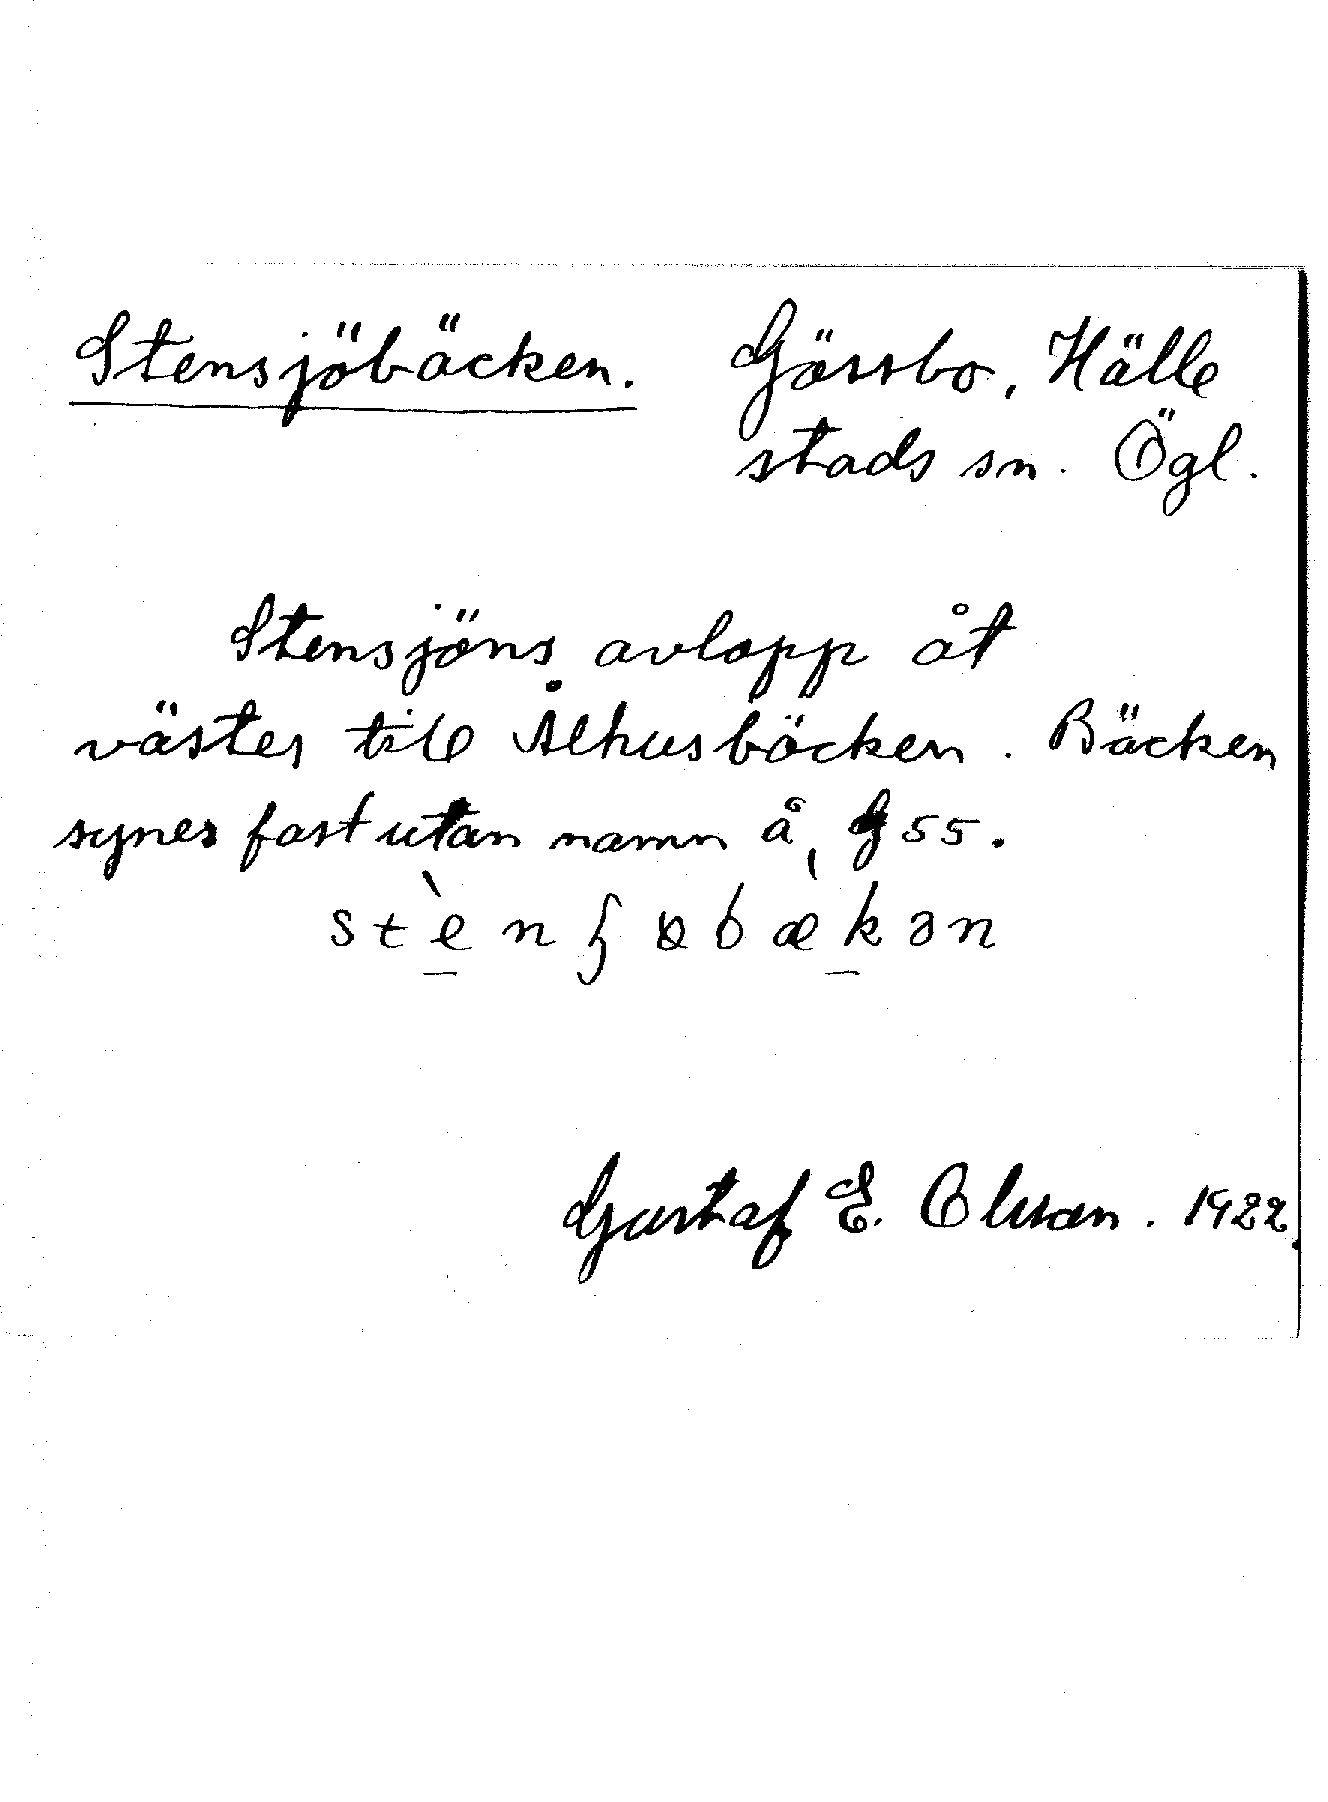 Stensjöbäcken. Gössbo, Hälle
stads sn. Ögl.
Stensjöns avlopp åt
väster till Ålhusbäcken. Bäcken
synes fast utan namn å G 55.
Gustaf E. Olsson. 1922.